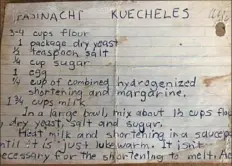 FASINACHT KUECHELES
3-4 cups flour
1 package dry yeast
½ teaspoon salt
¼ cup sugar
1 egg
¼ cup of combined hydrogenized
shortening and margarine.
1¾ cups milk
In a large bowl, mix about 1½ cups flour
, dry yeast, salt and sugar.
Heat milk and shortening in a saucepan
until it is just lukewarm. It isn't
necessary for the shortening to melt.